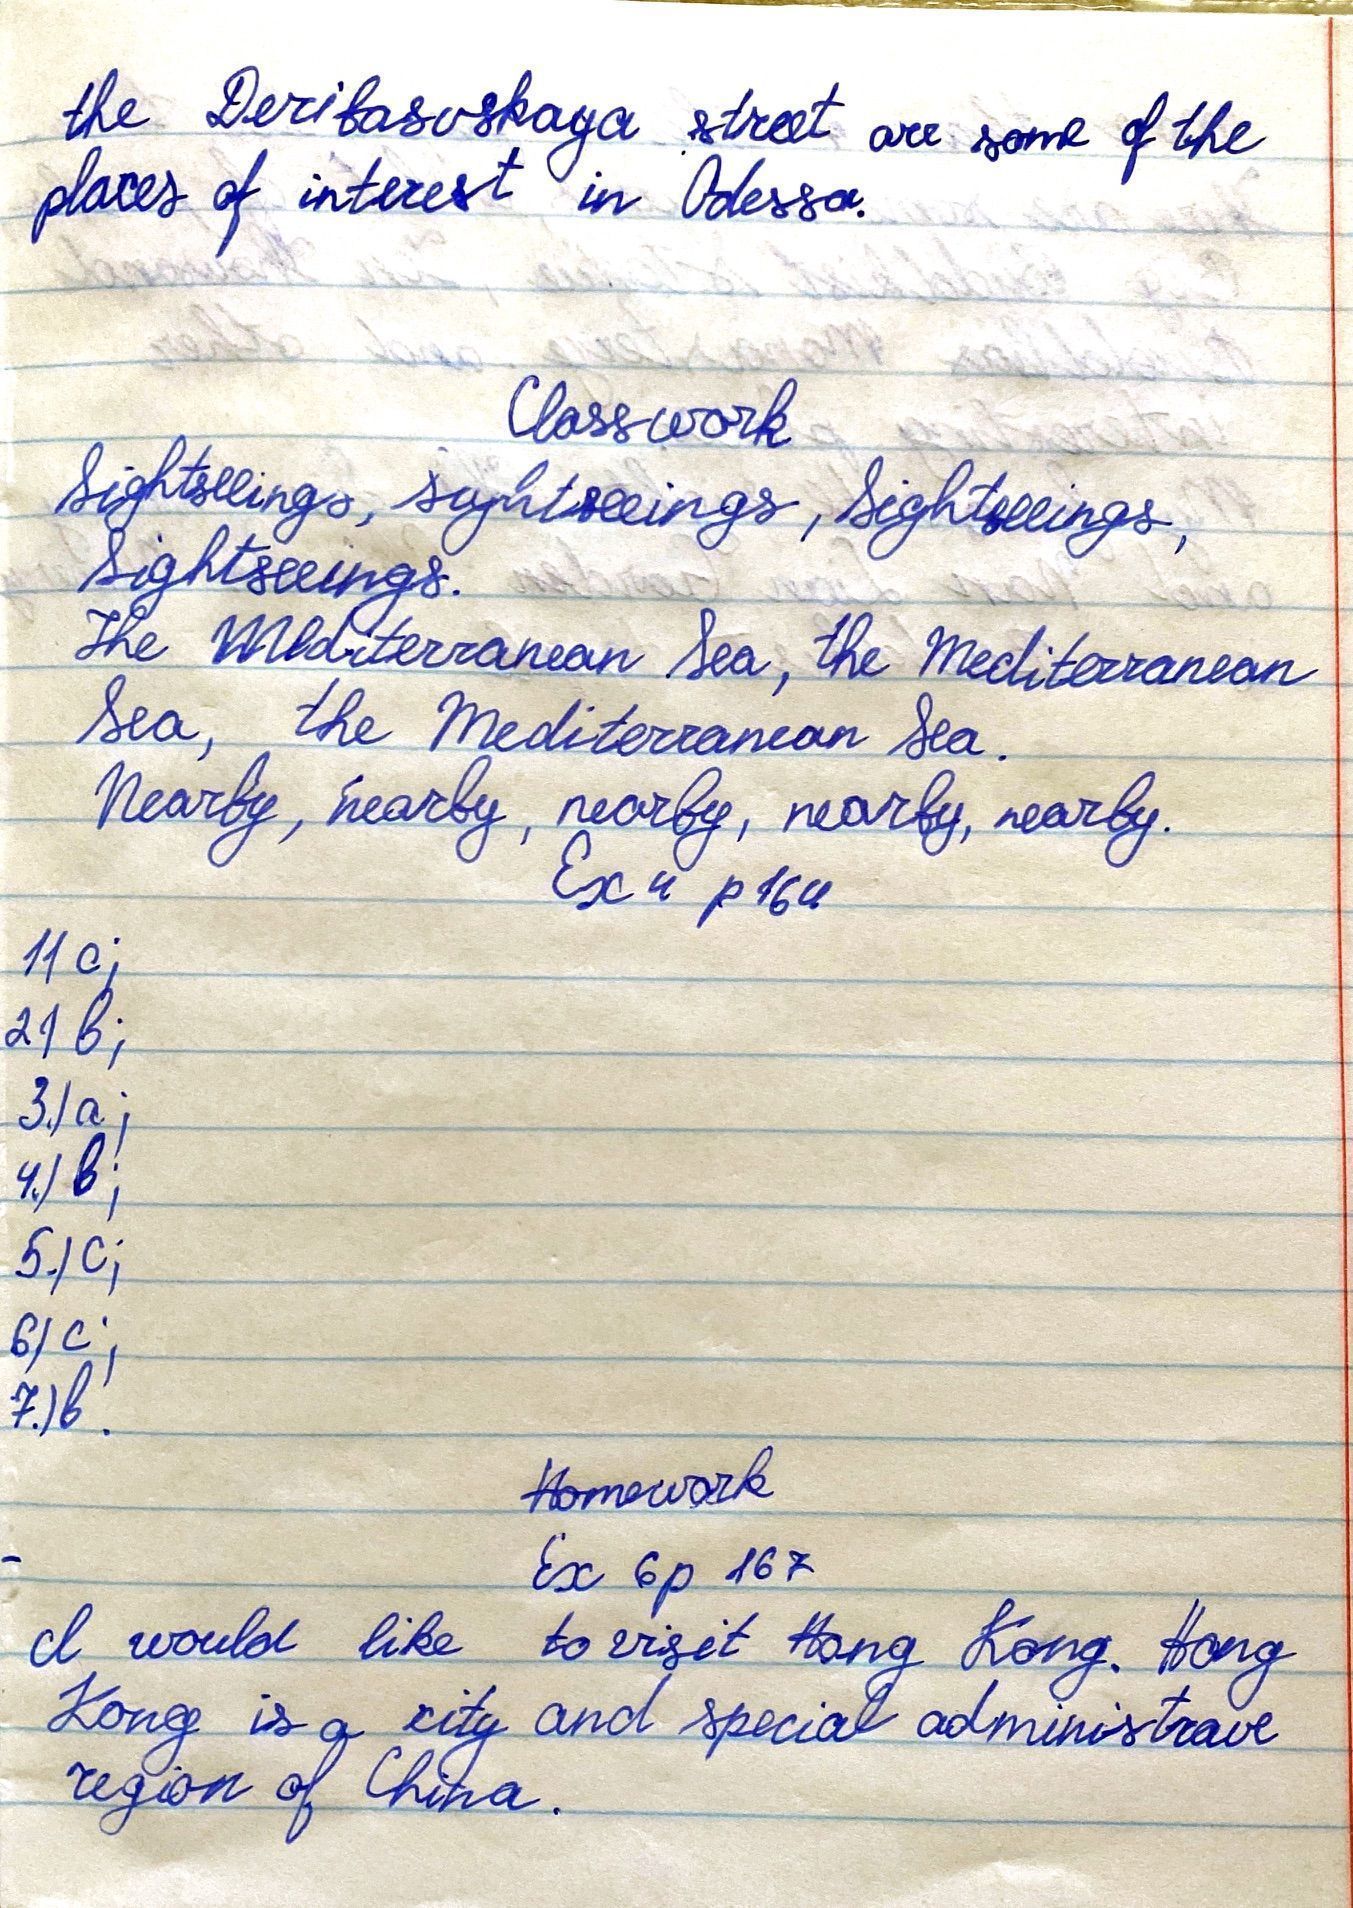 the Deribasovskaya street are some of the
places of interest in Odessa.
Classwork
Sightseeings, sightseeings, Sightseeings,
Sightseeings.
The Mediterranean Sea, the Mediterranean
Sea, the Mediterranean Sea.
Nearby, nearby, nearby, nearby, nearby.
Ex 4 p 164
1) c;
2) b;
3.) a;
4.) b;
5.) c;
6) c;
7.) b.
Homework
Ex 6 p 167
I would like to visit Hong Kong. Hong
Kong is a city and special administrave
region of China.